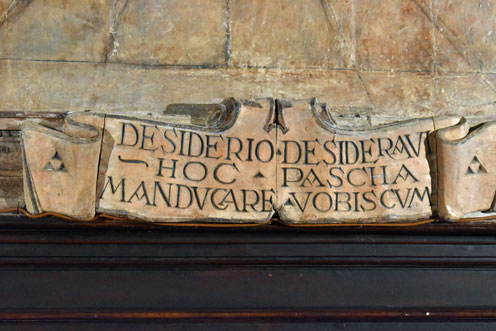 DESIDERIO · DESIDERAVI
HOC · PASCHA
MANDVCARE VOBISCVM